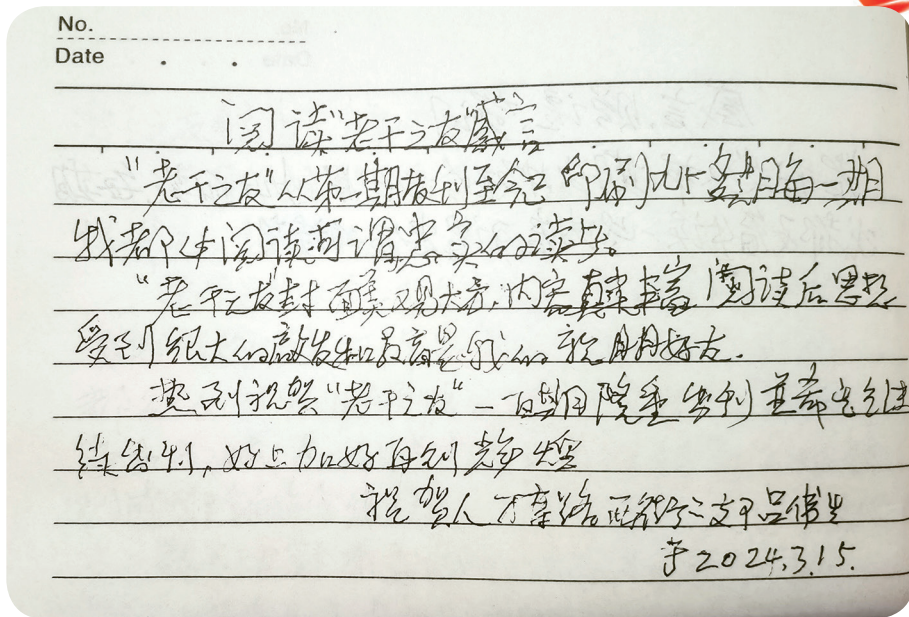 No.
Date
阅读"老干之友"感言
"老干之友"从第一期发刊至今已印刷九十多期每一期
我都在阅读可谓忠实的读者。
"老干之友"封面美观大方,内容真实丰富阅读后思想
受到很大的启发和教育是我的亲朋好友.
热烈祝贺"老干之友"一百期隆重发刊并希望继
续发刊,好上加好再创辉煌
祝贺人 万寿路西街二支
于2024.3.15.